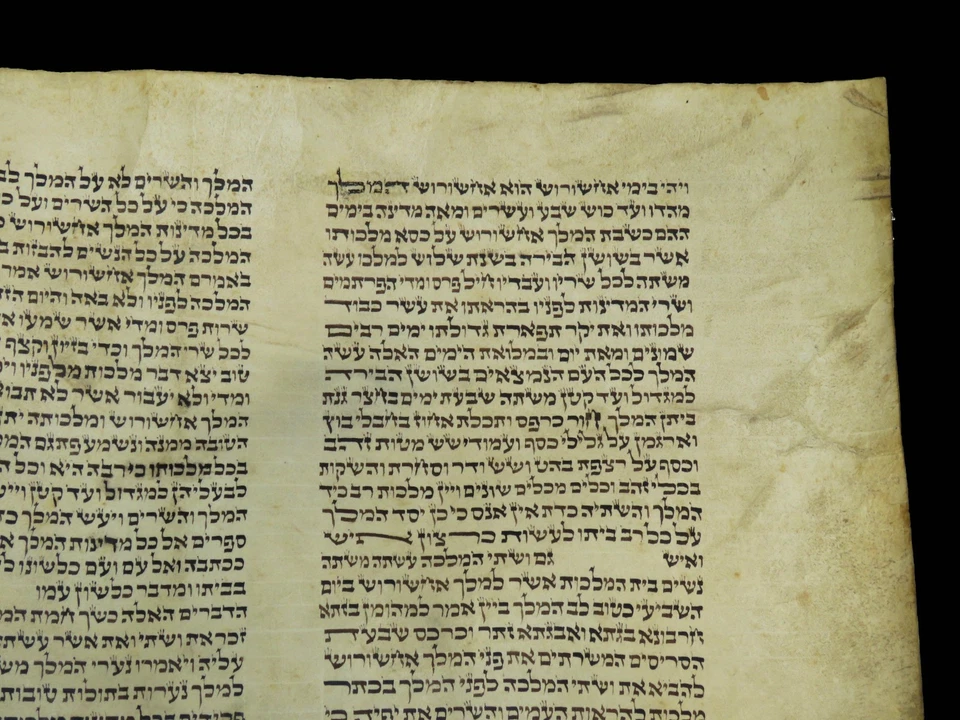 ויהי בימי אחשורוש הוא אחשורוש המלך
מהדו ועד כוש שבע ועשרים ומאה מדינה בימים
ההם כשבת המלך אחשורוש על כסא מלכותו
אשר בשושן הבירה בשנת שלוש למלכו עשה
משתה לכל שריו ועבדיו חיל פרס ומדי הפרתמים
ושרי המדינות לפניו בהראתו את עשר כבוד
מלכותו ואת יקר תפארת גדולתו ימים רבים
שמונים ומאת יום ובמלואת הימים האלה עשה
המלך לכל העם הנמצאים בשושן הבירה
למגדול ועד קטן משתה שבעת ימים בחצר גנת
ביתן המלך חור כרפס ותכלת אחוז בחבלי בוץ
וארגמן על גלילי כסף ועמודי שש מטות זהב
וכסף על רצפת בהט ושש ודר וסחרת והשקות
בכלי זהב וכלים מכלים שונים ויין מלכות רב כיד
המלך והשתיה כדת אין אנס כי כן יסד המלך
על כל רב ביתו לעשות כרצון איש
ואיש גם ושתי המלכה עשתה משתה
נשים בית המלכות אשר למלך אחשורוש ביום
השביעי כטוב לב המלך ביין אמר למהומן בזתא
חרבונא בגתא ואבגתא זתר וכרכס שבעת
הסריסים המשרתים את פני המלך אחשורוש
להביא את ושתי המלכה לפני המלך בכתר
מלכות להראות העמים והשרים את יפיה כי
המלך והשרים לא על המלך
המלכה כי על כל השרים ועל
בכל מדינות המלך אחשורוש
המלכה על כל הנשים להבזות
באמרם המלך אחשורוש אמר
המלכה לפניו ולא באה והיום
שרות פרס ומדי אשר שמעו
לכל שרי המלך וכדי בזיון וקצף
טוב יצא דבר מלכות מלפניו
ומדי ולא יעבור אשר לא
המלך אחשורוש ומלכותה
הטובה ממנה ונשמע פתגם
בכל מלכותו כי רבה היא וכל
לבעליהן למגדול ועד קטן
המלך והשרים ויעש המלך
ספרים אל כל מדינות המלך
ככתבה ואל עם ועם כלשונו
בביתו ומדבר כלשון עמו
הדברים האלה כשך חמת
זכר את ושתי ואת אשר
עליה ויאמרו נערי המלך
למלך נערות בתולות טובות